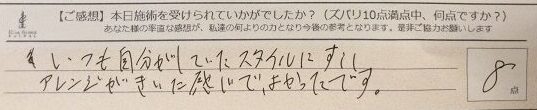 【ご感想】本日施術を受けられていかがでしたか？（ズバリ10点満点中、何点ですか？）
あなた様の率直な感想が、私達の何よりの力となり今後の参考となります。是非ご協力お願いします
いつも自分がしていたスタイルに少し
アレンジがきいた感じで、よかったです。
8
点